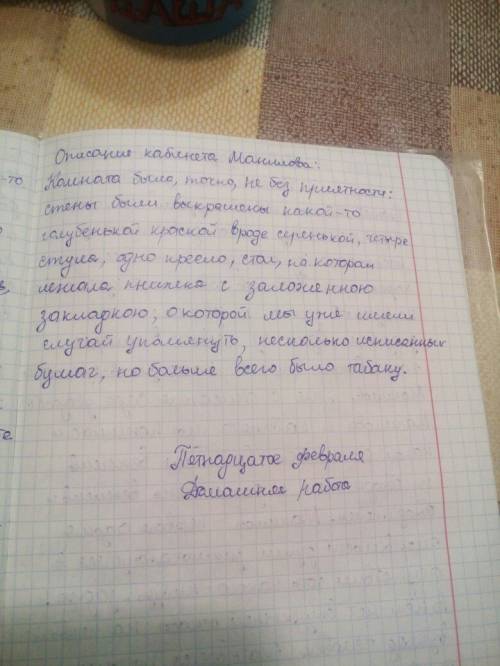 МАША
Описание кабинета Манилова:
-то
Комната была, точно, не без приятности:
стены были выкрашены какой-то
голубенькой краской вроде серенькой, четыре
стула, одно кресло, стол, на котором
лежала книжка с заложенною
закладкою, о которой мы уже имели
случай упомянуть, несколько исписанных
бумаг, но больше всего было табаку.
Петнадцатое февраля
Домашняя работа